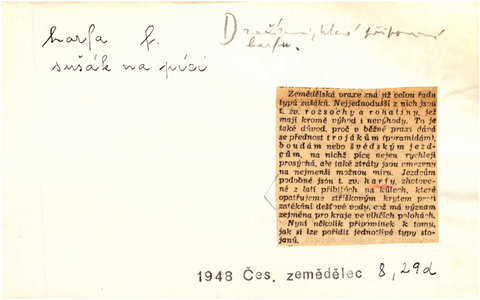 harfa f.
sušák na píci
D
harfu.
Zemědělská praxe zná již celou řadu
typů sušáků. Nejjednodušší z nich jsou
t. zv. rozsochy a rohatiny, jež
mají kromě výhod i nevýhody. To je
také důvod, proč v běžné praxi dává
se přednost trojákům (pyramidám),
boudám nebo švédským jezd-
cům, na nichž píce nejen rychleji
prosýchá, ale také ztráty jsou omezeny
na nejmenší možnou míru. Jezdcům
podobné jsou t. zv. harfy, zhotove-
né z latí přibitých na kůlech, které
opatřujeme stříškovým krytem proti
zatékání dešťové vody, což má význam
zejména pro kraje ve vlhčích polohách.
Nyní několik připomínek k tomu,
jak si lze pořídit jednotlivé typy sto-
janů.
1948 Čes. zemědělec 8, 29d